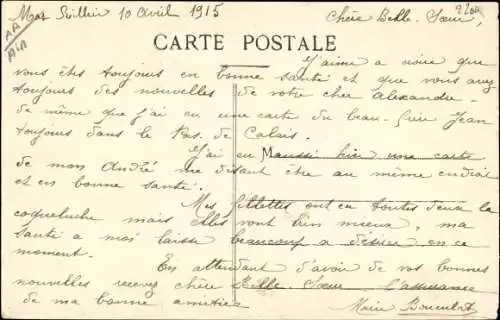 10 Avril 1915 Chère Belle-Sœur,
CARTE POSTALE
J'aime a croire que
vous êtes toujours en bonne santé et que vous avez
toujours des nouvelles de votre cher Alexandre.
de même que j'ai eu une carte du beau-frère Jean
toujours dans le Pas de Calais.
J'ai eu aussi hier une carte
de mon André me disant être au même endroit
et en bonne santé.
Mes fillettes ont eu toutes deux la
coqueluche mais elles vont bien mieux, ma
santé a moi laisse beaucoup a désirer en ce
moment.
En attendant d'avoir de vos bonnes
nouvelles recevez chère Belle-Sœur l'assurance
de ma bonne amitié
Marie